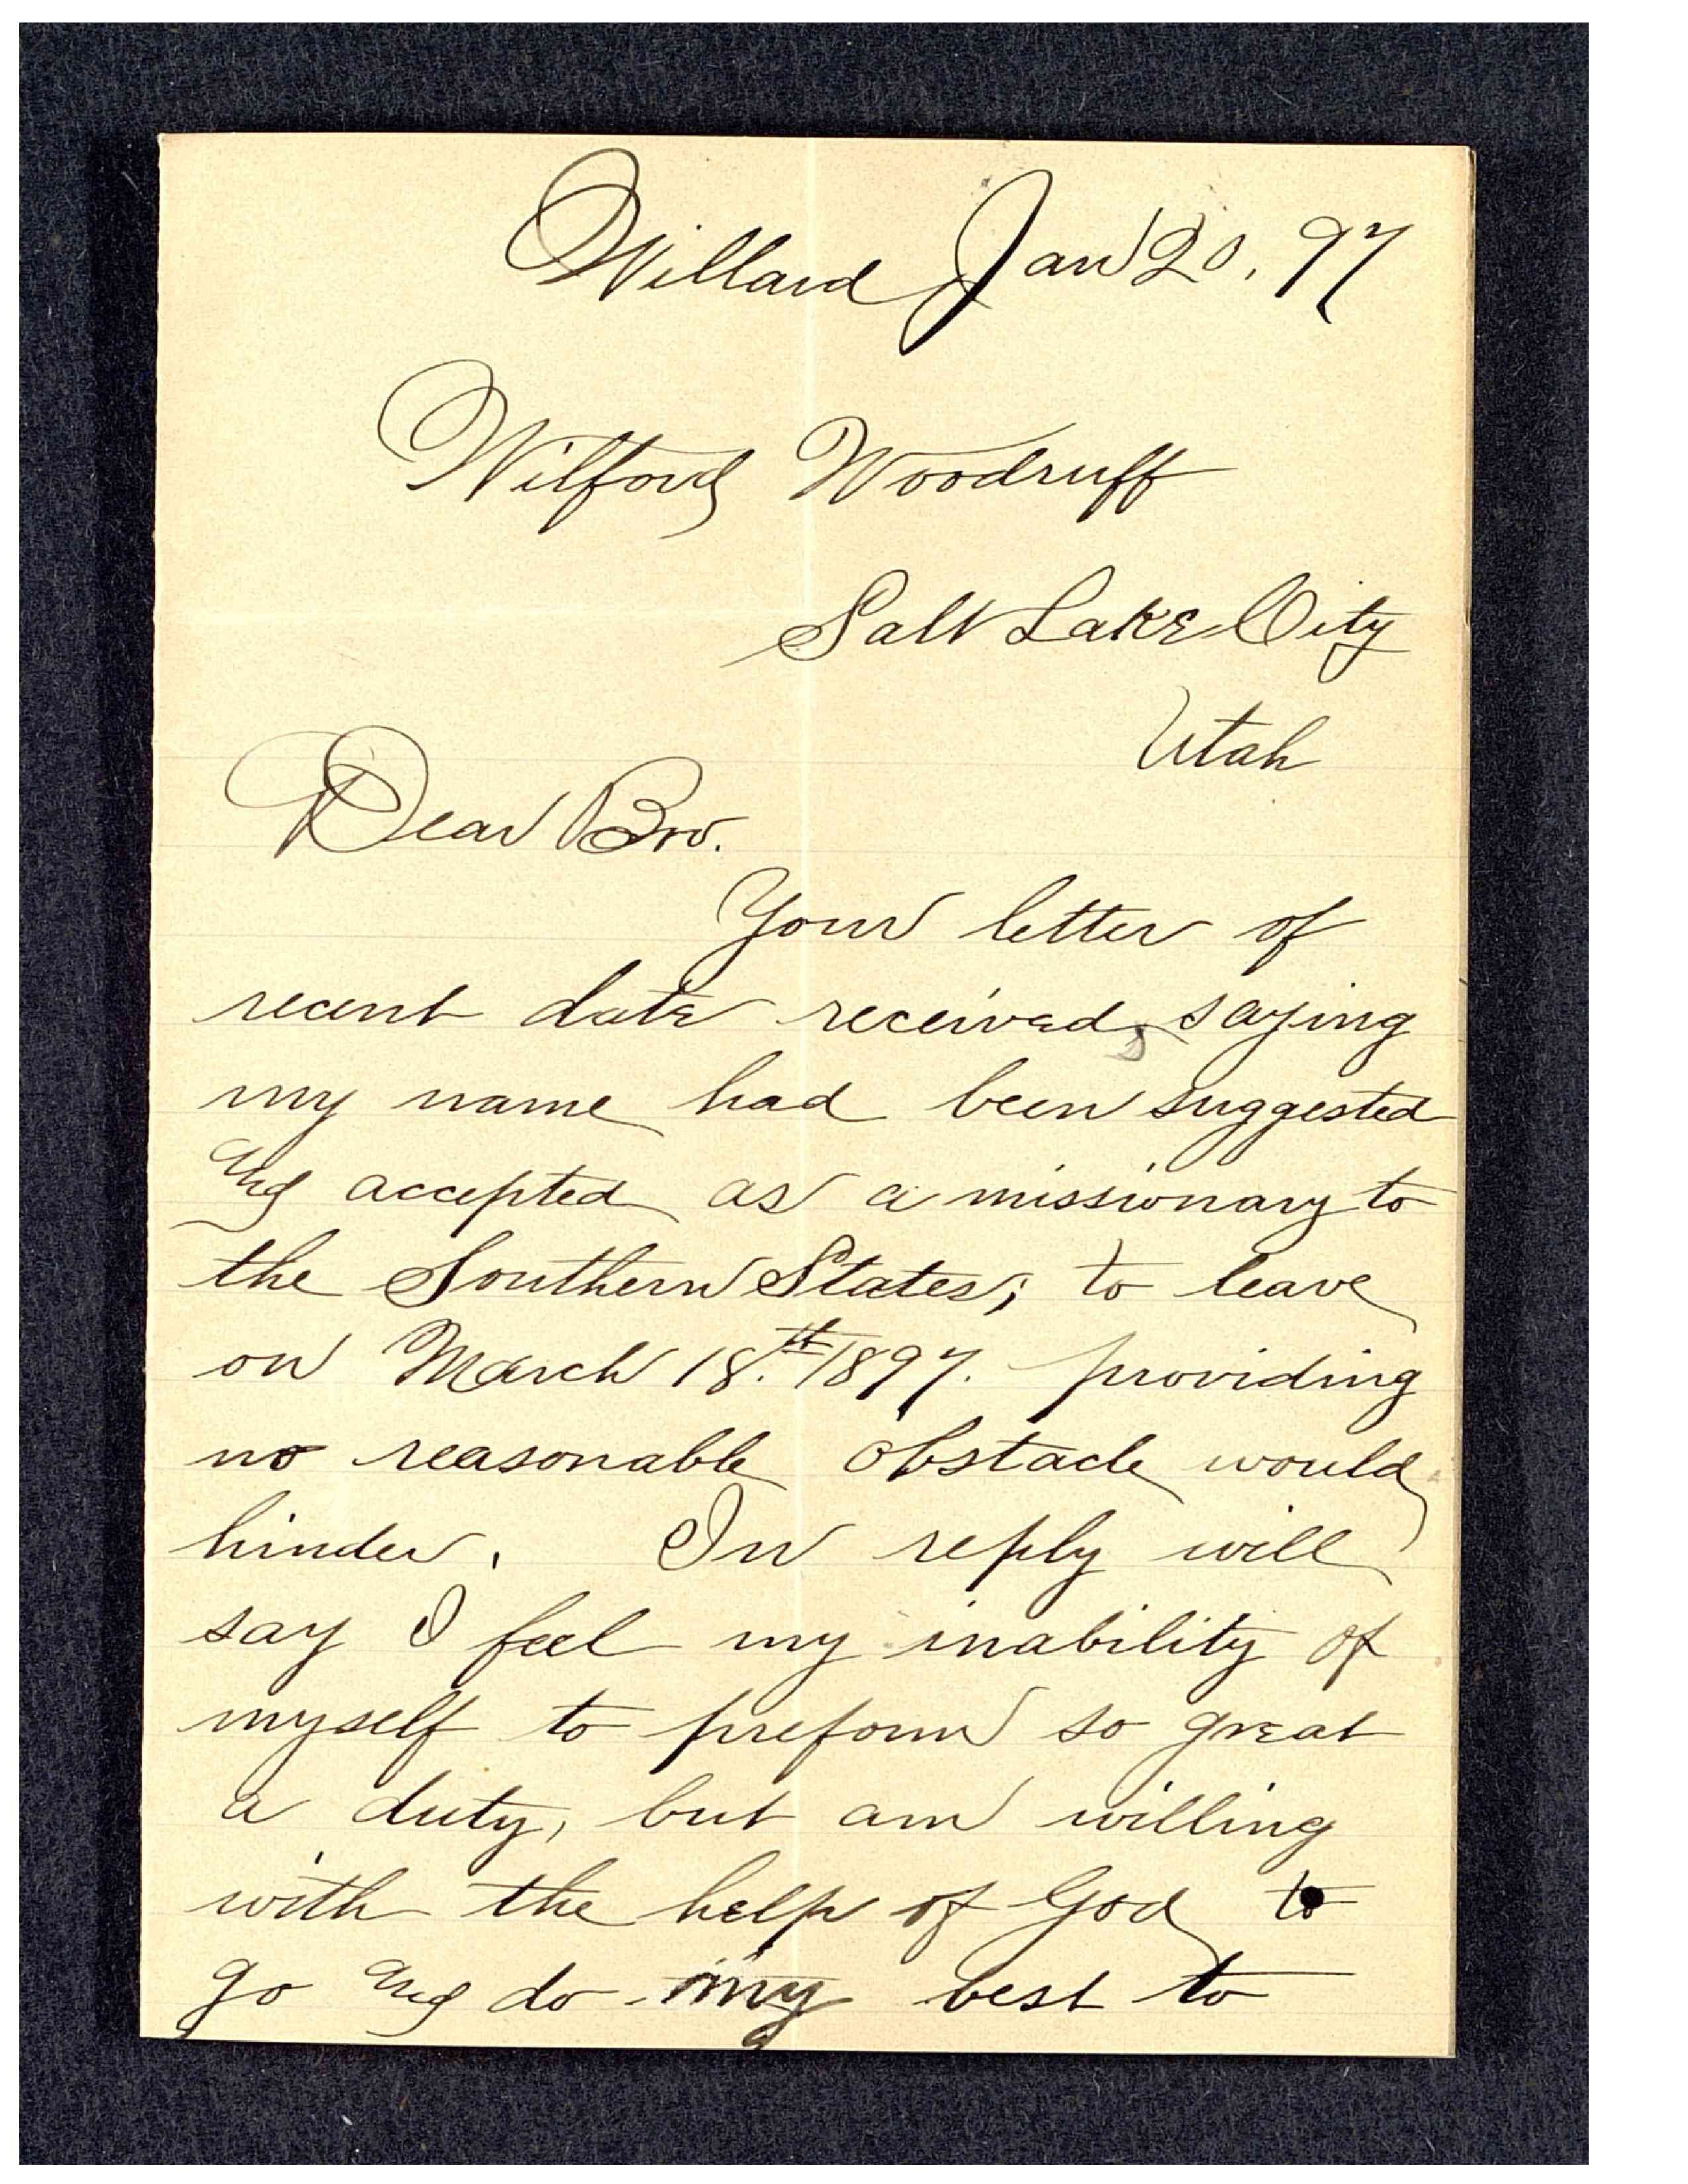 Willard Jan 20, 97
Wilford Woodruff
Salt Lake City
Utah
Dear Bro.
Your letter of
recent date received, saying
my name had been suggested
and accepted as a missionary to
the Southern States; to leave
on March 18.th 1897. providing
no reasonable obstacle would
hinder. In reply will
say I feel my inability of
myself to preform so great
a duty, but am willing
with the help of God to
go and do my best to